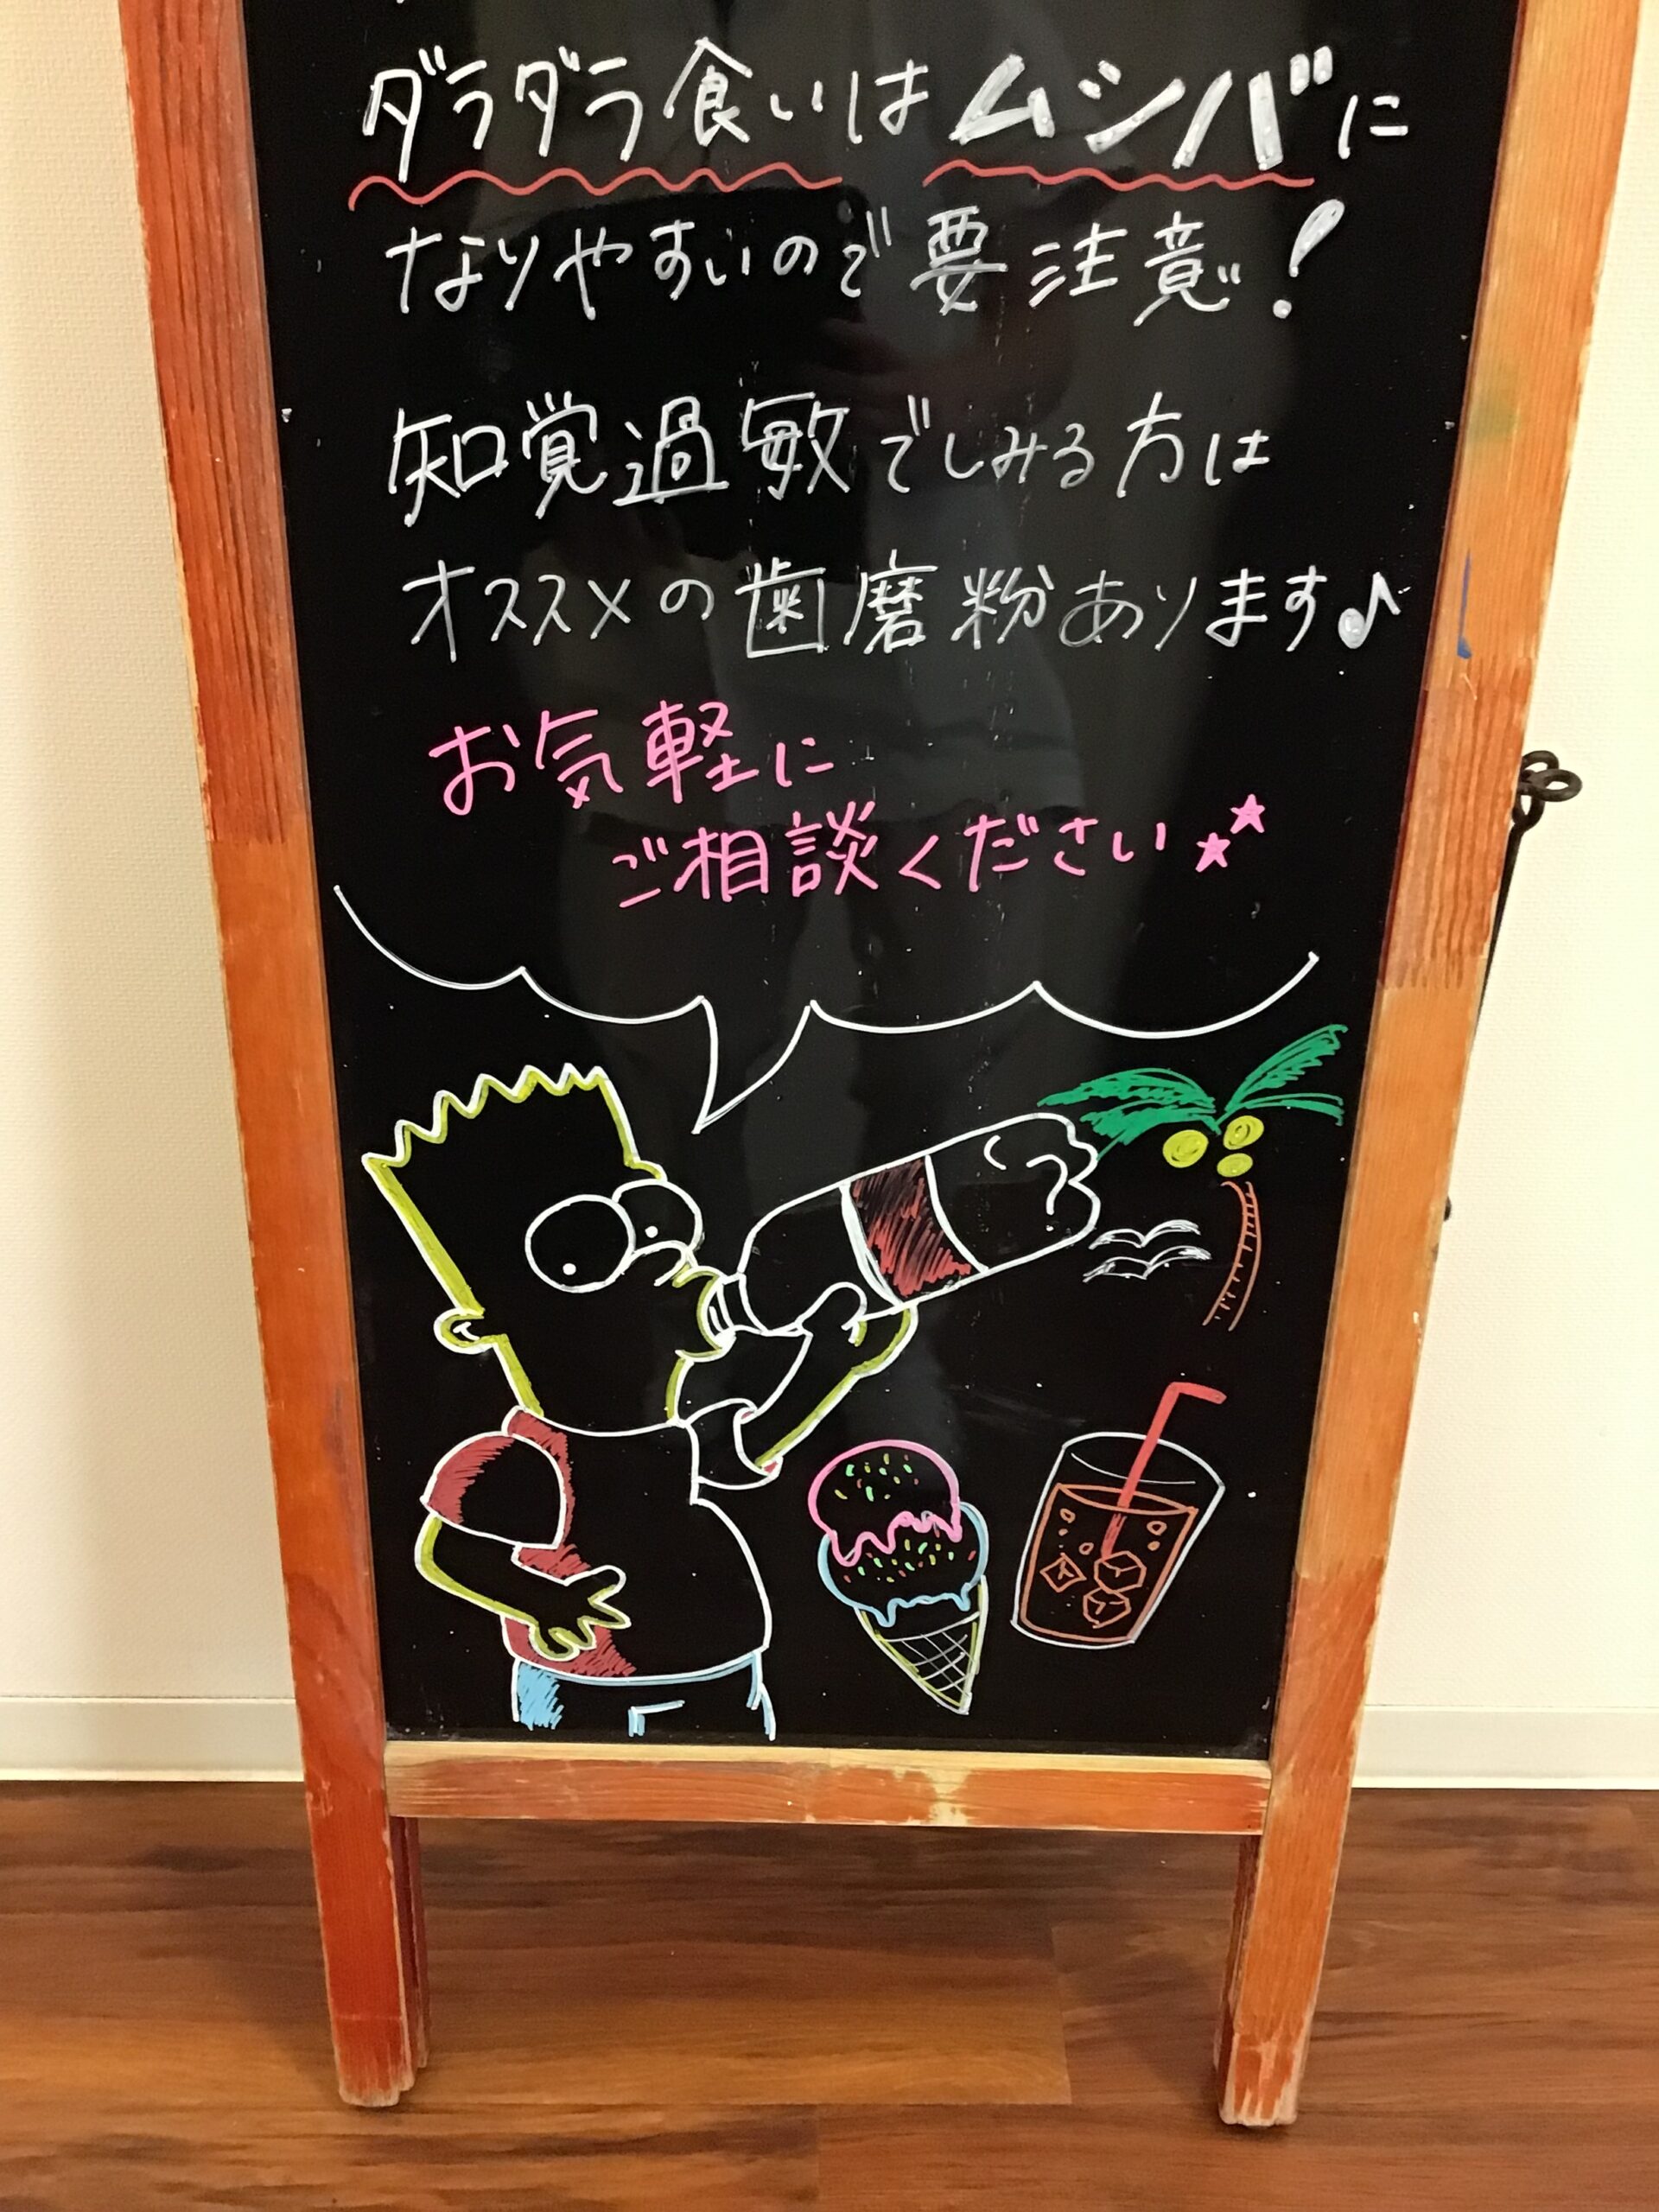 ダラダラ食いはムシバに
なりやすいので要注意!
知覚過敏でしみる方は
オススメの歯磨粉あります♪
お気軽に
ご相談ください★★